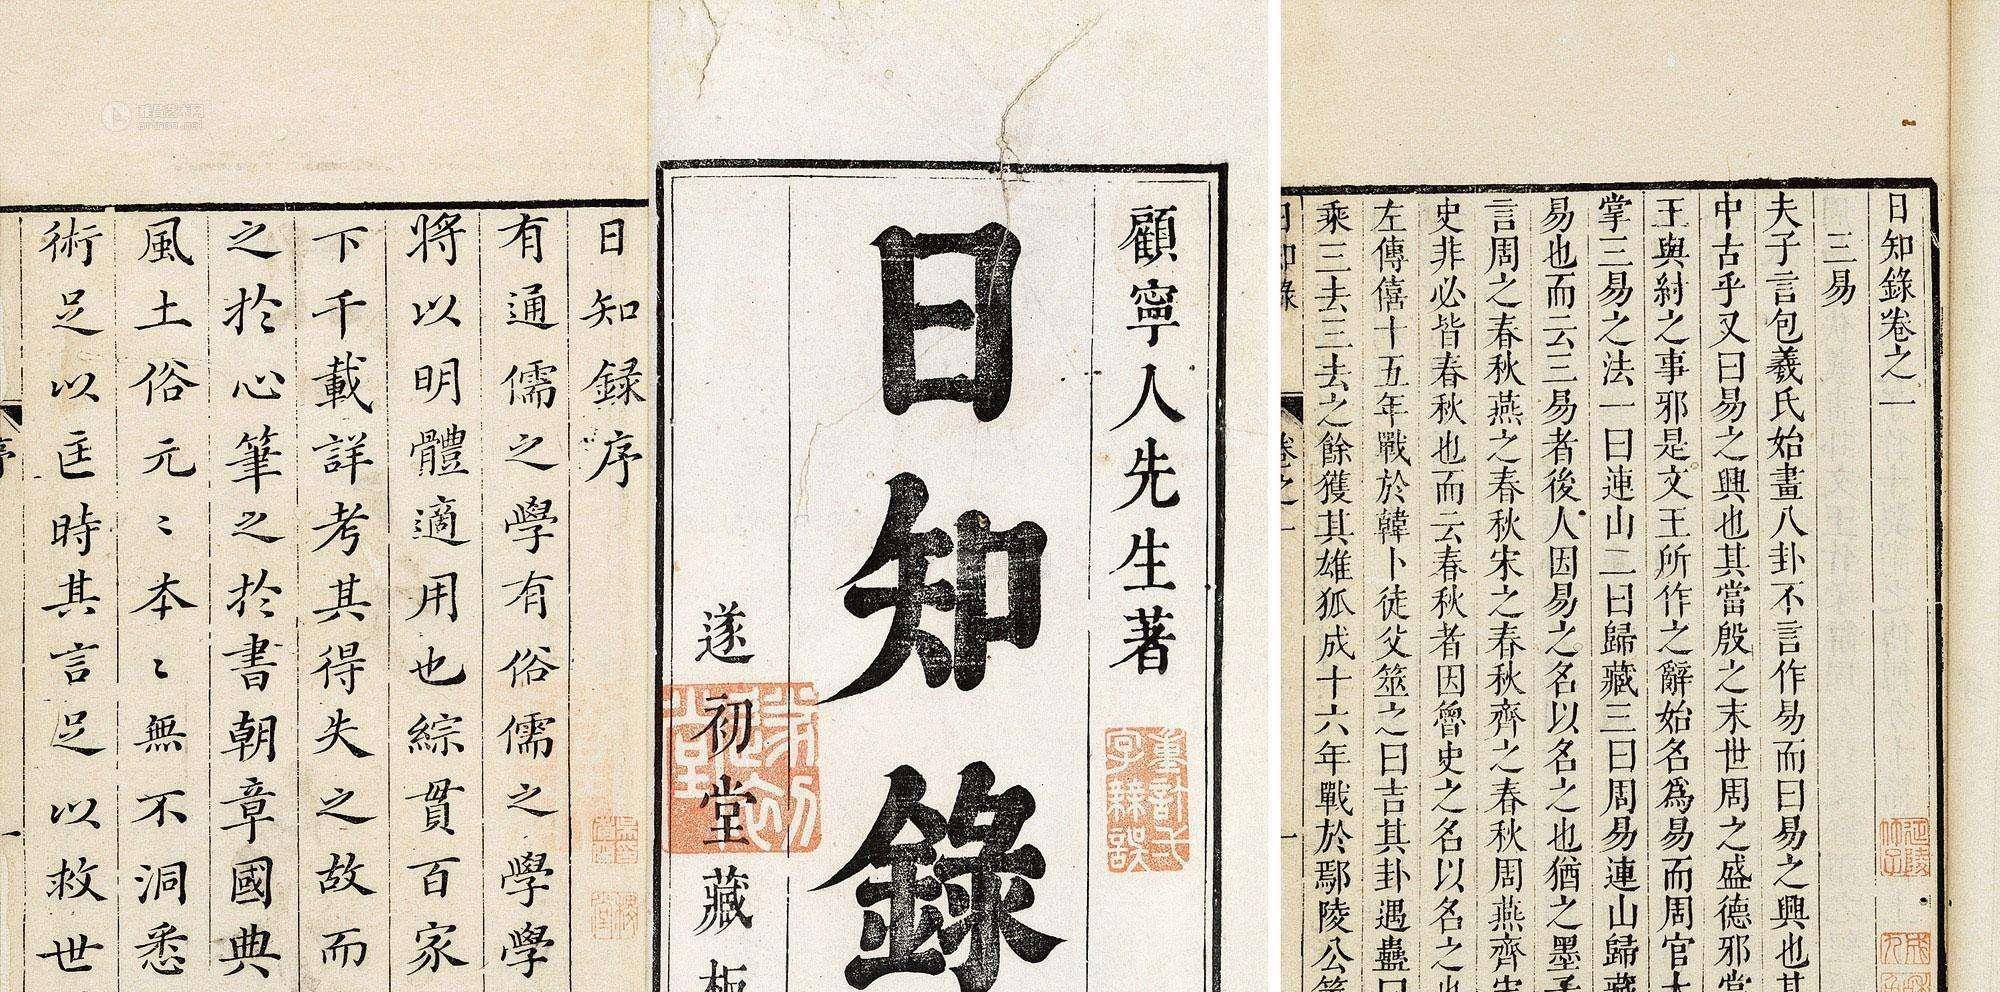 日知錄序
有通儒之學有俗儒之學學
將以明體適用也綜貫百家
下千載詳考其得失之故而
之於心筆之於書朝章國典
風土俗元〻本〻無不洞悉
術足以匡時其言足以救世
序
一
顧寧人先生著
日知錄
遂初堂藏板
日知錄卷之一
三易
夫子言包羲氏始畫八卦不言作易而曰易之興也其
中古乎又曰易之興也其當殷之末世周之盛德邪當
王與紂之事邪是文王所作之辭始名為易而周官大
掌三易之法一曰連山二曰歸藏三曰周易連山歸藏
易也而云三易者後人因易之名以名之也猶之墨子
言周之春秋燕之春秋宋之春秋齊之春秋周燕齊宋
史非必皆春秋也而云春秋者因魯史之名以名之也
左傳僖十五年戰於韓卜徒父筮之曰吉其卦遇蠱曰
乘三去三去之餘獲其雄狐成十六年戰於鄢陵公筮
日知錄
卷之一
一